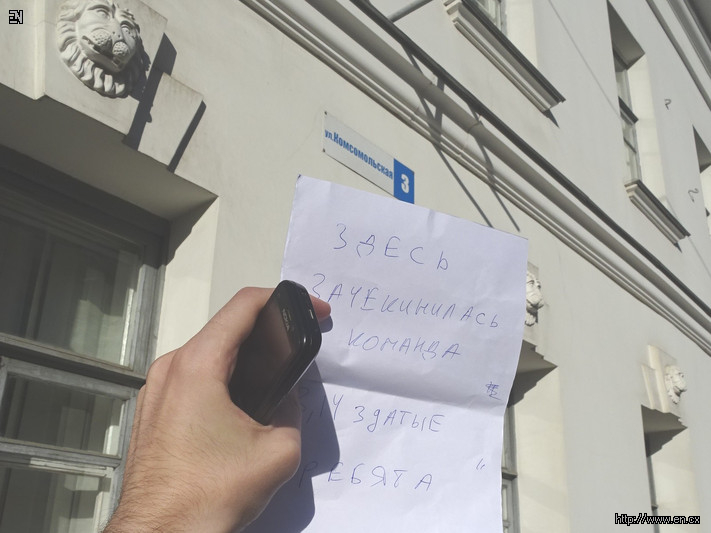 EN
ул.Комсомольская 3
ЗДЕСЬ
ЗАЧЕКИНИЛАСЬ
КОМАНДА
ЗДАТЫЕ
РЕБЯТА "
http://www.en.cx